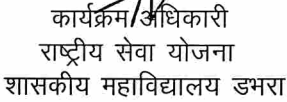 कार्यक्रम/अधिकारी
राष्ट्रीय सेवा योजना
शासकीय महाविद्यालय डभरा